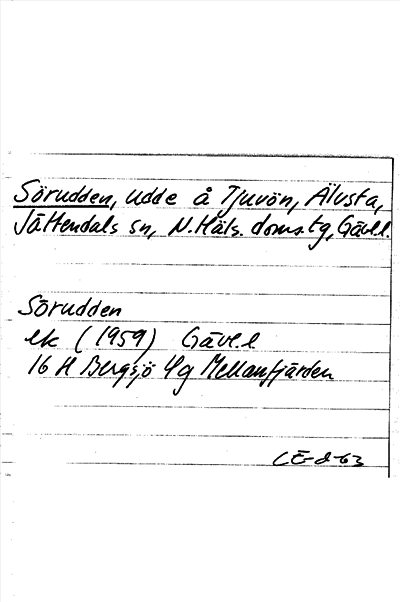 Sörudden, udde å Tjuvön, Älvsta,
Jättendals sn, N. Häls. doms.tg, Gävl.l.
Sörudden
ek (1959) Gävl.l
16 H Bergsjö 4g Mellanfjärden